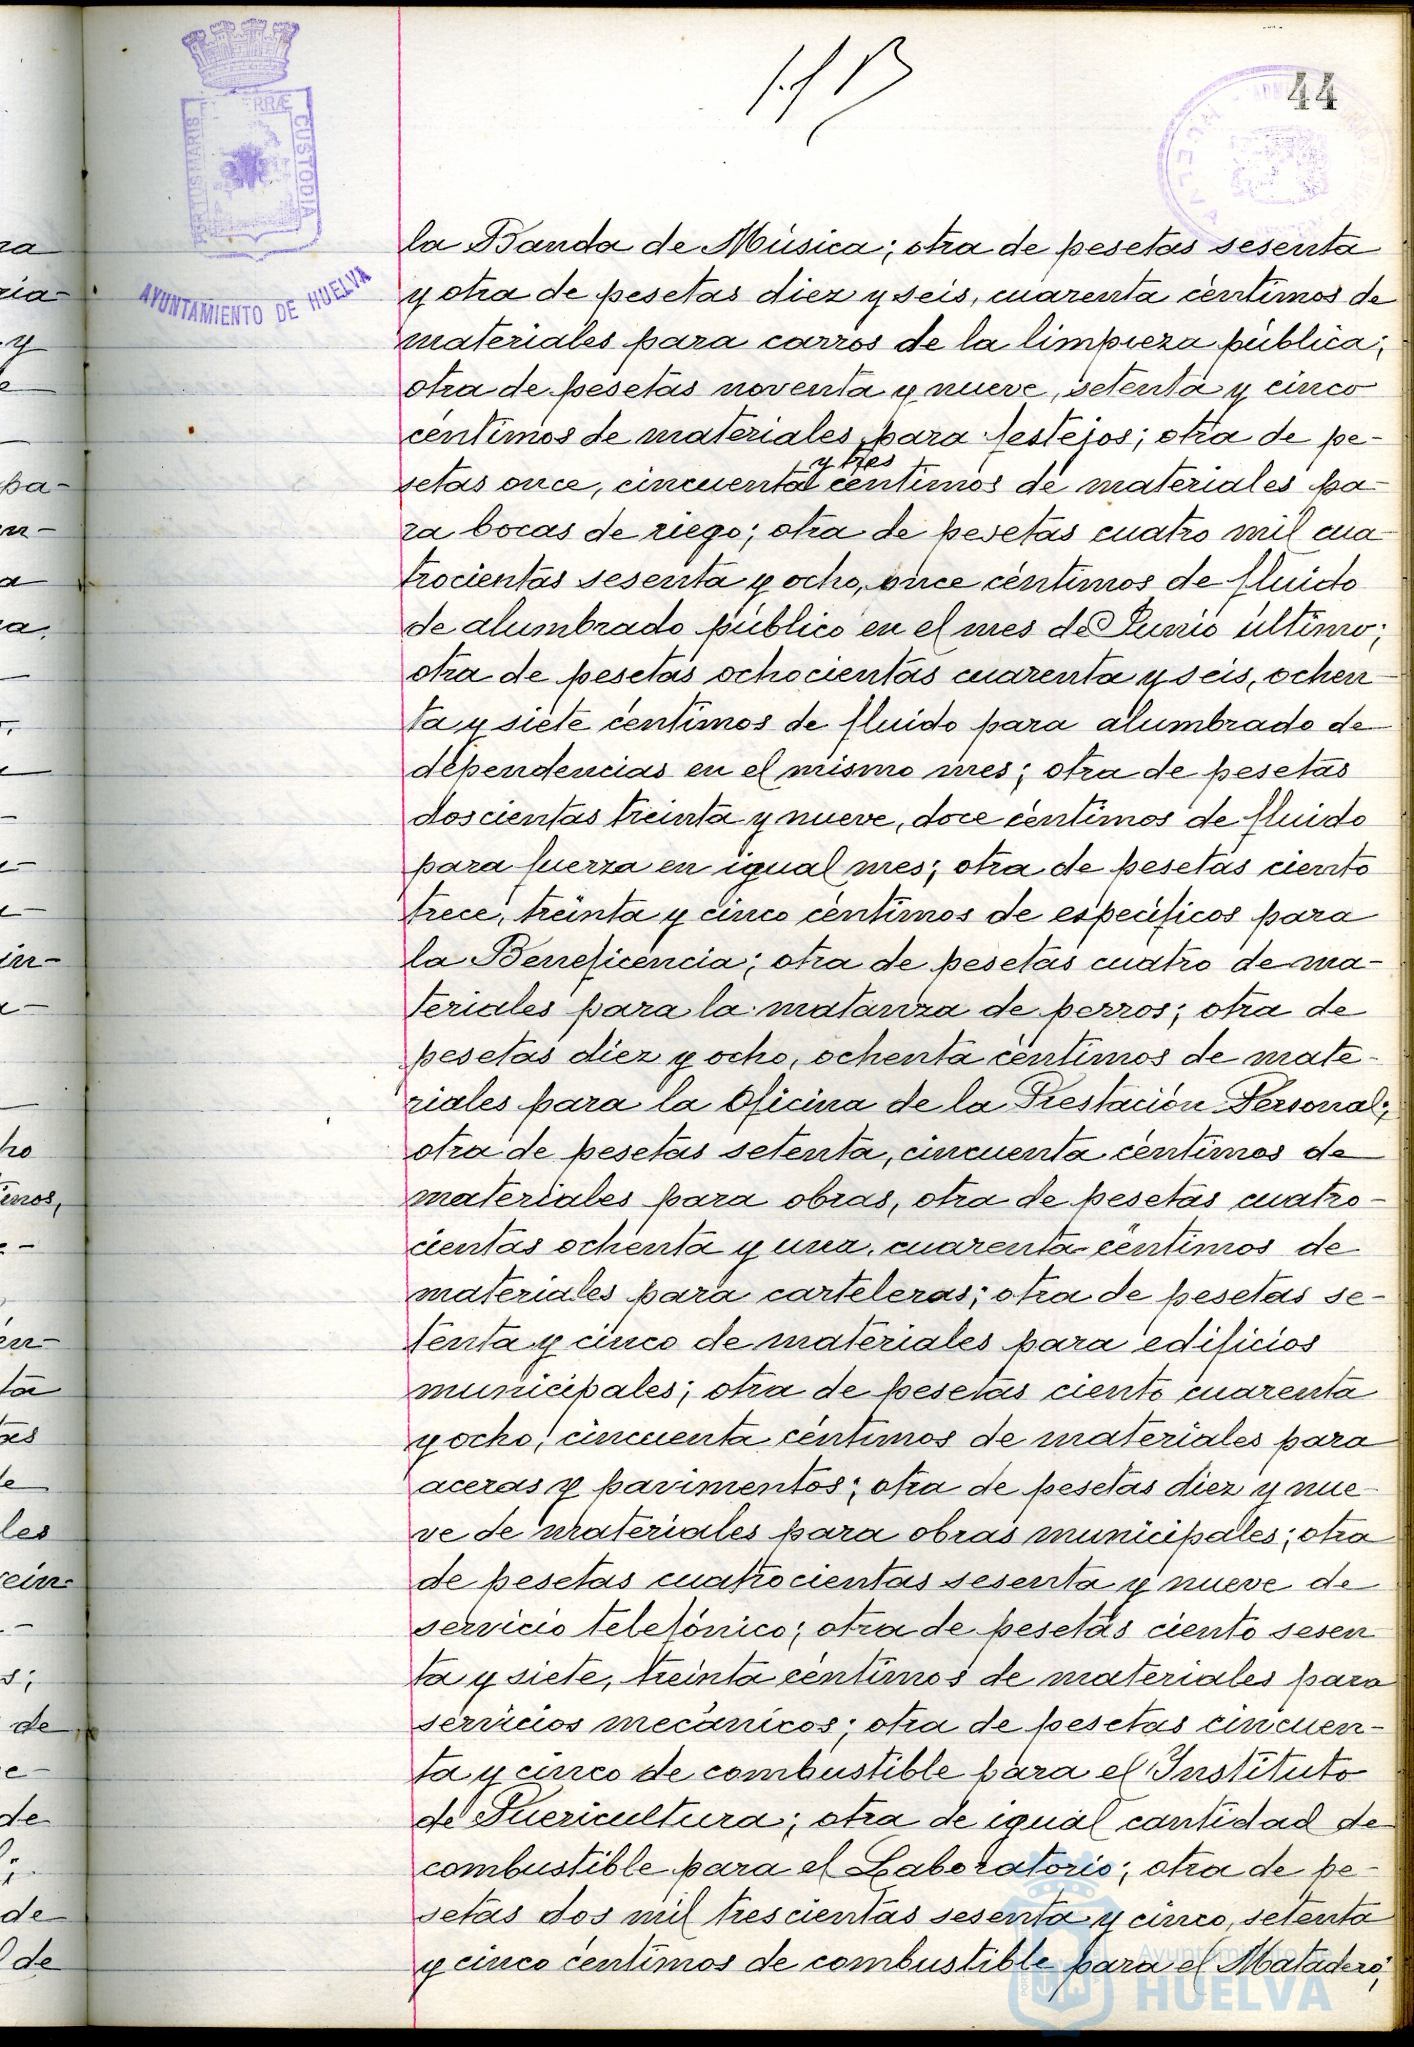 44
PORTUS MARIS ET TERRÆ CUSTODIA
AYUNTAMIENTO DE HUELVA
HUELVA
la Banda de Música; otra de pesetas sesenta
y otra de pesetas diez y seis, cuarenta céntimos de
materiales para carros de la limpieza pública;
otra de pesetas noventa y nueve, setenta y cinco
céntimos de materiales para festejos; otra de pe-
y tres
setas once, cincuenta céntimos de materiales pa-
ra bocas de riego; otra de pesetas cuatro mil cua-
trocientas sesenta y ocho, once céntimos de fluido
de alumbrado público en el mes de Junio último;
otra de pesetas ochocientas cuarenta y seis, ochen-
ta y siete céntimos de fluido para alumbrado de
dependencias en el mismo mes; otra de pesetas
doscientas treinta y nueve, doce céntimos de fluido
para fuerza en igual mes; otra de pesetas ciento
trece, treinta y cinco céntimos de específicos para
la Beneficencia; otra de pesetas cuatro de ma-
teriales para la matanza de perros; otra de
pesetas diez y ocho, ochenta céntimos de mate-
riales para la Oficina de la Prestación Personal;
otra de pesetas setenta, cincuenta céntimos de
materiales para obras, otra de pesetas cuatro-
cientas ochenta y una, cuarenta céntimos de
materiales para carteleras; otra de pesetas se-
tenta y cinco de materiales para edificios
municipales; otra de pesetas ciento cuarenta
y ocho, cincuenta céntimos de materiales para
aceras y pavimentos; otra de pesetas diez y nue-
ve de materiales para obras municipales; otra
de pesetas cuatrocientas sesenta y nueve de
servicio telefónico; otra de pesetas ciento sesen
ta y siete, treinta céntimos de materiales para
servicios mecánicos; otra de pesetas cincuen-
ta y cinco de combustible para el Instituto
de Puericultura; otra de igual cantidad de
combustible para el Laboratorio; otra de pe-
setas dos mil trescientas sesenta y cinco, setenta
y cinco céntimos de combustible para el Matadero;
Ayuntamiento de
HUELVA